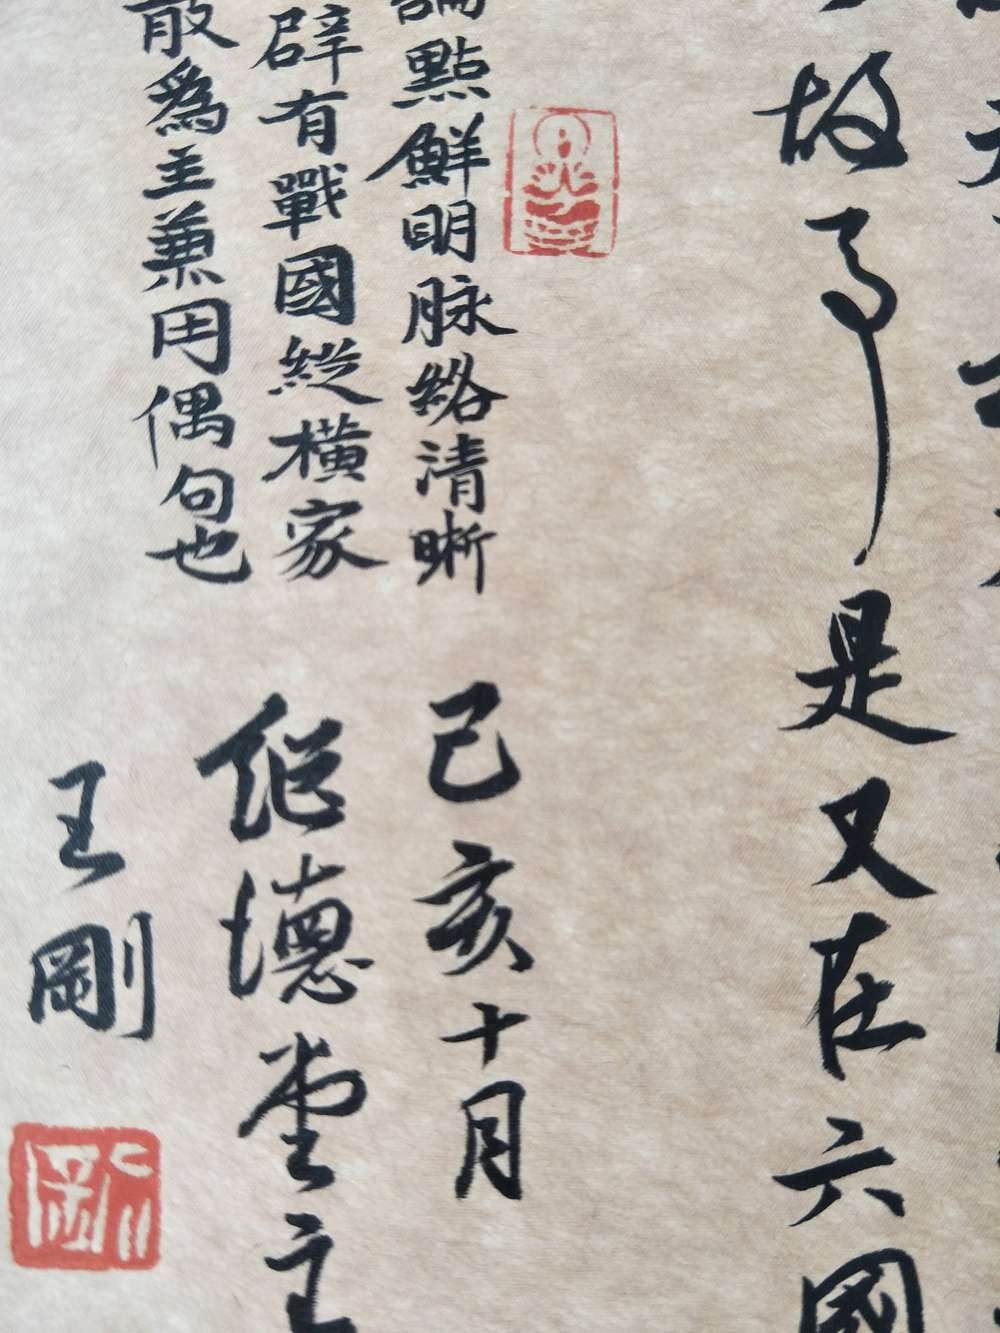 故事是又在六國
論點鮮明脉絡清晰
辟有戰國縱横家
散為主兼用偶句也
己亥十月
继德堂主
王剛
剛